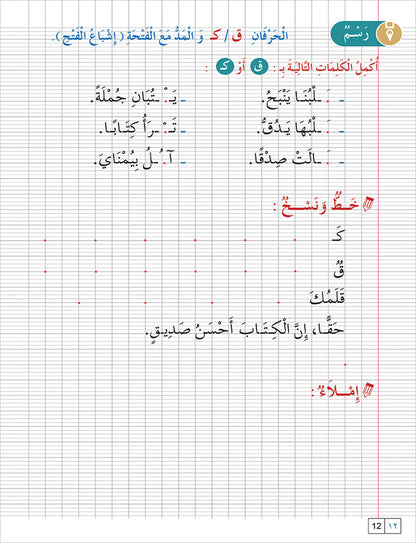 رَسْمٌ
الْحَرْفَانِ ق / كـ وَ الْمَدُّ مَعَ الْفَتْحَةِ ( إِشْبَاعُ الْفَتْحِ ) .
أُكْمِلُ الْكَلِمَاتِ التَّالِيَةَ بِـ : ق أَوْ كـ :
- . ـلْبُنَا يَنْبَحُ. - يَـ . ـتُبَانِ جُمْلَةً.
- . ـلْبُهَا يَدُقُّ. - تَـ . ـرَأُ كِتَابًا.
- . ـالَتْ صِدْقًا. - آ . ـلُ بِيُمْنَايَ.
خَـطٌّ وَنَسْـخٌ :
كَـ . . . . . .
قُ . . . . . .
قَلَمُكَ . . . . .
حَقًّا، إِنَّ الْكِتَابَ أَحْسَنُ صَدِيقٍ.
.
إِمْـلَاءٌ :
12 ١٢